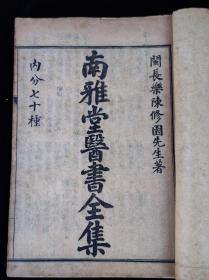 閩長樂陳修園先生著
南雅堂醫書全集
內分七十種